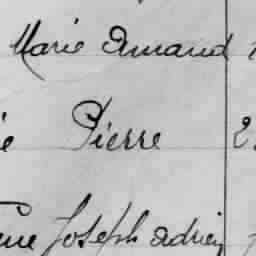 Marie Amand
Pierre 2
Joseph Adrien